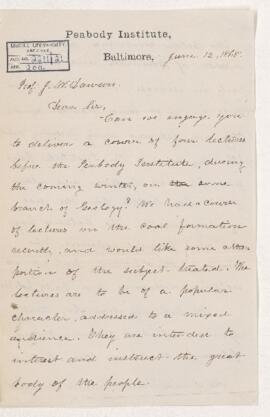 Peabody Institute,
McGILL UNIVERSITY
ARCHIVES
ACC. NO.
REF.
Baltimore, June 12, 1868.
Prof. J. W. Dawson.
Dear Sir,
Can we engage you
to deliver a course of four lectures
before the Peabody Institute, during
the coming winter, on some
branch of Geology? We had a course
of lectures on the coal formation
recently, and would like some other
portion of the subject treated. The
lectures are to be of a popular
character, addressed to a mixed
audience. They are intended to
interest and instruct the great
body of the people.